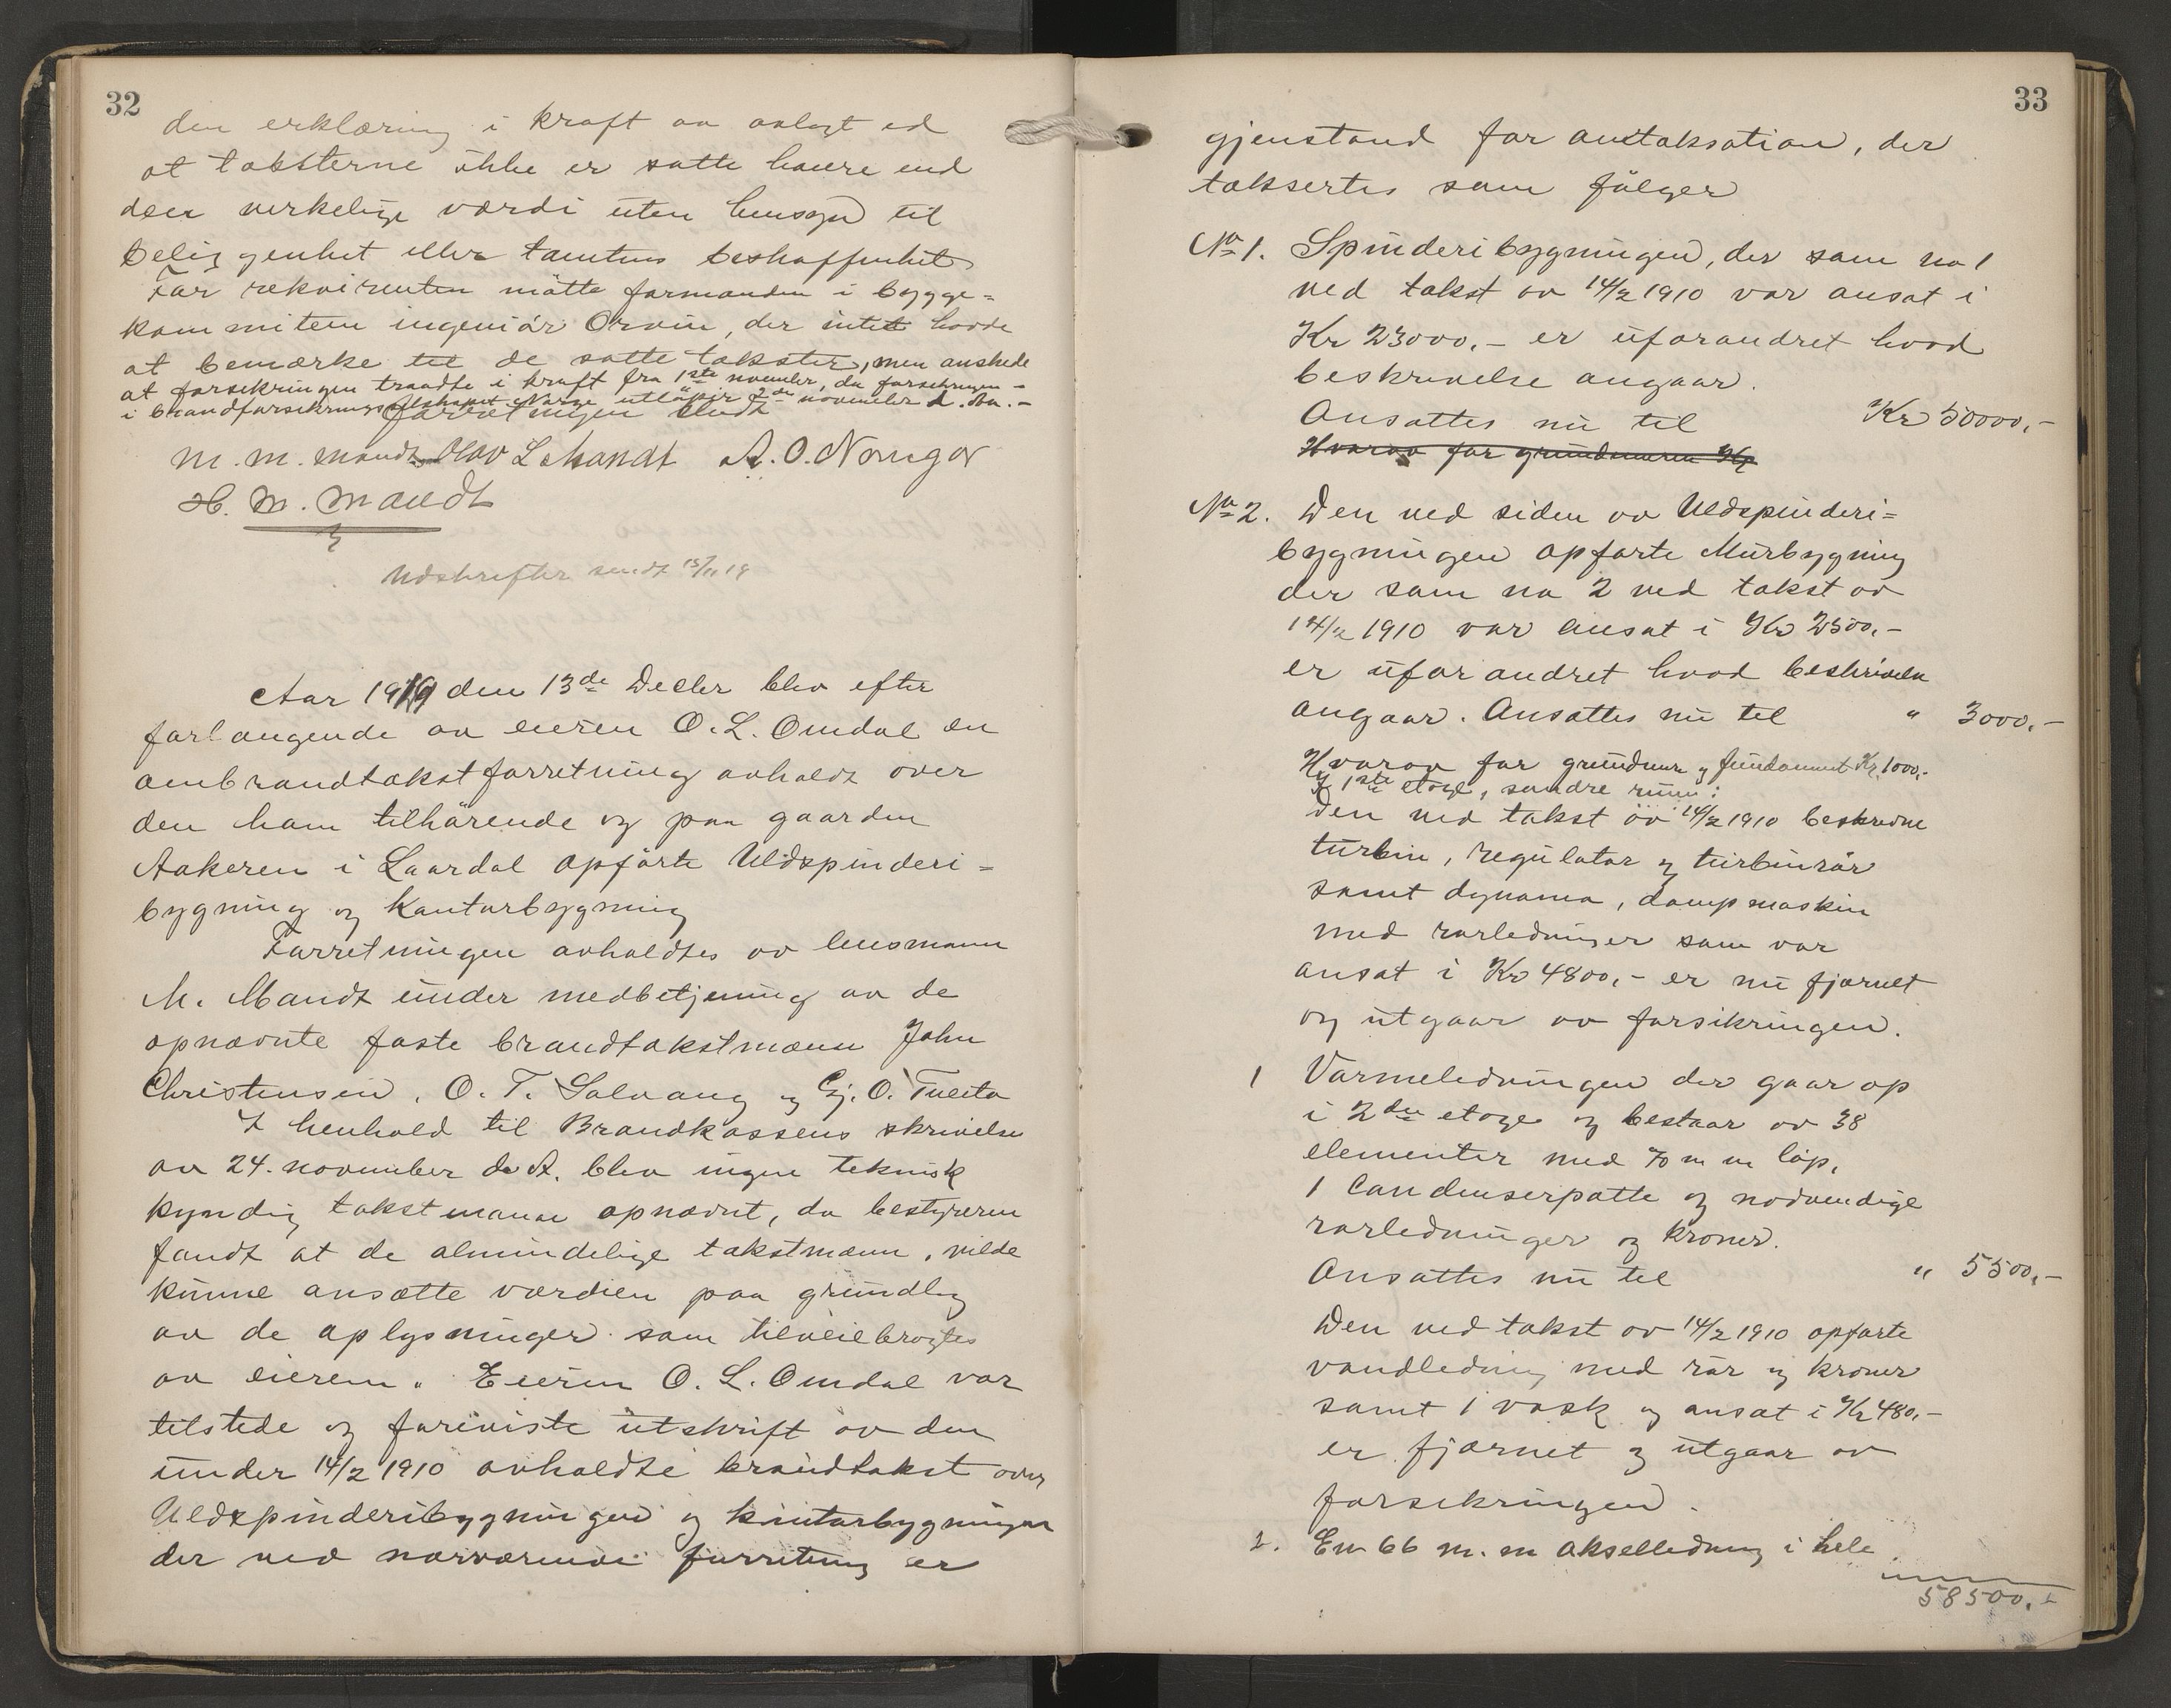 32
den erklæring i kraft av avlagt ed
at taksterne ikke er satte høiere end
den verkelige værdi uten hensyn til
beliggenhet eller tomtens beskaffenhet
For rekvirenten møtte formanden i bygge=
kommiteen ingeniør Orvin, der intet havde
at bemærke til de satte takster, men ønskede
at forsikringen traadte i kraft fra 1ste november, da forsikringen
i brandforsikringsselskapet Norge utløper 2den november d. Aa.-
Forretningen slutt
M. M. Mandt Olav L Mandt A. O. Norigar
H. M. Mandt
Udskrifter sendt 13/11 19
Aar 1919 den 13de Decbr blev efter
forlangende av eieren O. L. Omdal en
ombrandtakstforretning avholdt over
den ham tilhørende og paa gaarden
Aakeren i Laardal opførte Uldspinderi=
bygning og Kontorbygning
Forretningen avholdtes av lensmann
M. Mandt under medbetjening av de
opnævnte faste brandtakstmænn John
Christensen, O. T. Salvang og Gj. O. Tveito
I henhold til Brandkassens skrivelse
av 24. november d. A. blev ingen teknisk
kyndig takstmann opnævnt, da bestyreren
fandt at de almindelige takstmænn, vilde
kunne ansætte værdien paa grundlag
av de oplysninger som tilveiebragtes
av eieren. Eieren O. L. Omdal var
tilstede og foreviste utskrift av den
under 14/2 1910 avholdte brandtakst over
Uldspinderibygningen og kontorbygningen
der ved nærværende forretning er
33
gjenstand for omtaksation, der
taksertes som følger
No 1. Spinderibygningen, der som no 1
ved takst av 14/2 1910 var ansat i
Kr 23000,- er uforandret hvad
beskrivelse angaar.
Ansattes nu til Kr 50000,-
Hvorav for grundmuren Kr
No 2. Den ved siden av Uldspinderi=
bygningen opførte Murbygning
der som no 2 ved takst av
14/2 1910 var ansat i Kr 2500,-
er uforandret hvad beskrivelse
angaar. Ansattes nu til " 3000,-
Hvorav for grundmur og fundament Kr. 1000,-
I 1ste etage, søndre rum:
Den ved takst av 14/2 1910 beskrevne
turbin, regulator og turbinrør
samt dynamo, dampmaskin
med rørledninger som var
ansat i Kr 4800,- er nu fjærnet
og utgaar av forsikringen.
1 Varmeledningen der gaar op
i 2den etage og bestaar av 38
elementer med 70 m m løp,
1 Condenserpotte og nødvendige
rørledninger og kroner.
Ansattes nu til " 5500,-
Den ved takst av 14/2 1910 opførte
vandledning med rør og kroner
samt 1 vask og ansat i Kr 480,-
er fjærnet og utgaar av
forsikringen.
2. En 66 m. m akselledning i hele
58500,-